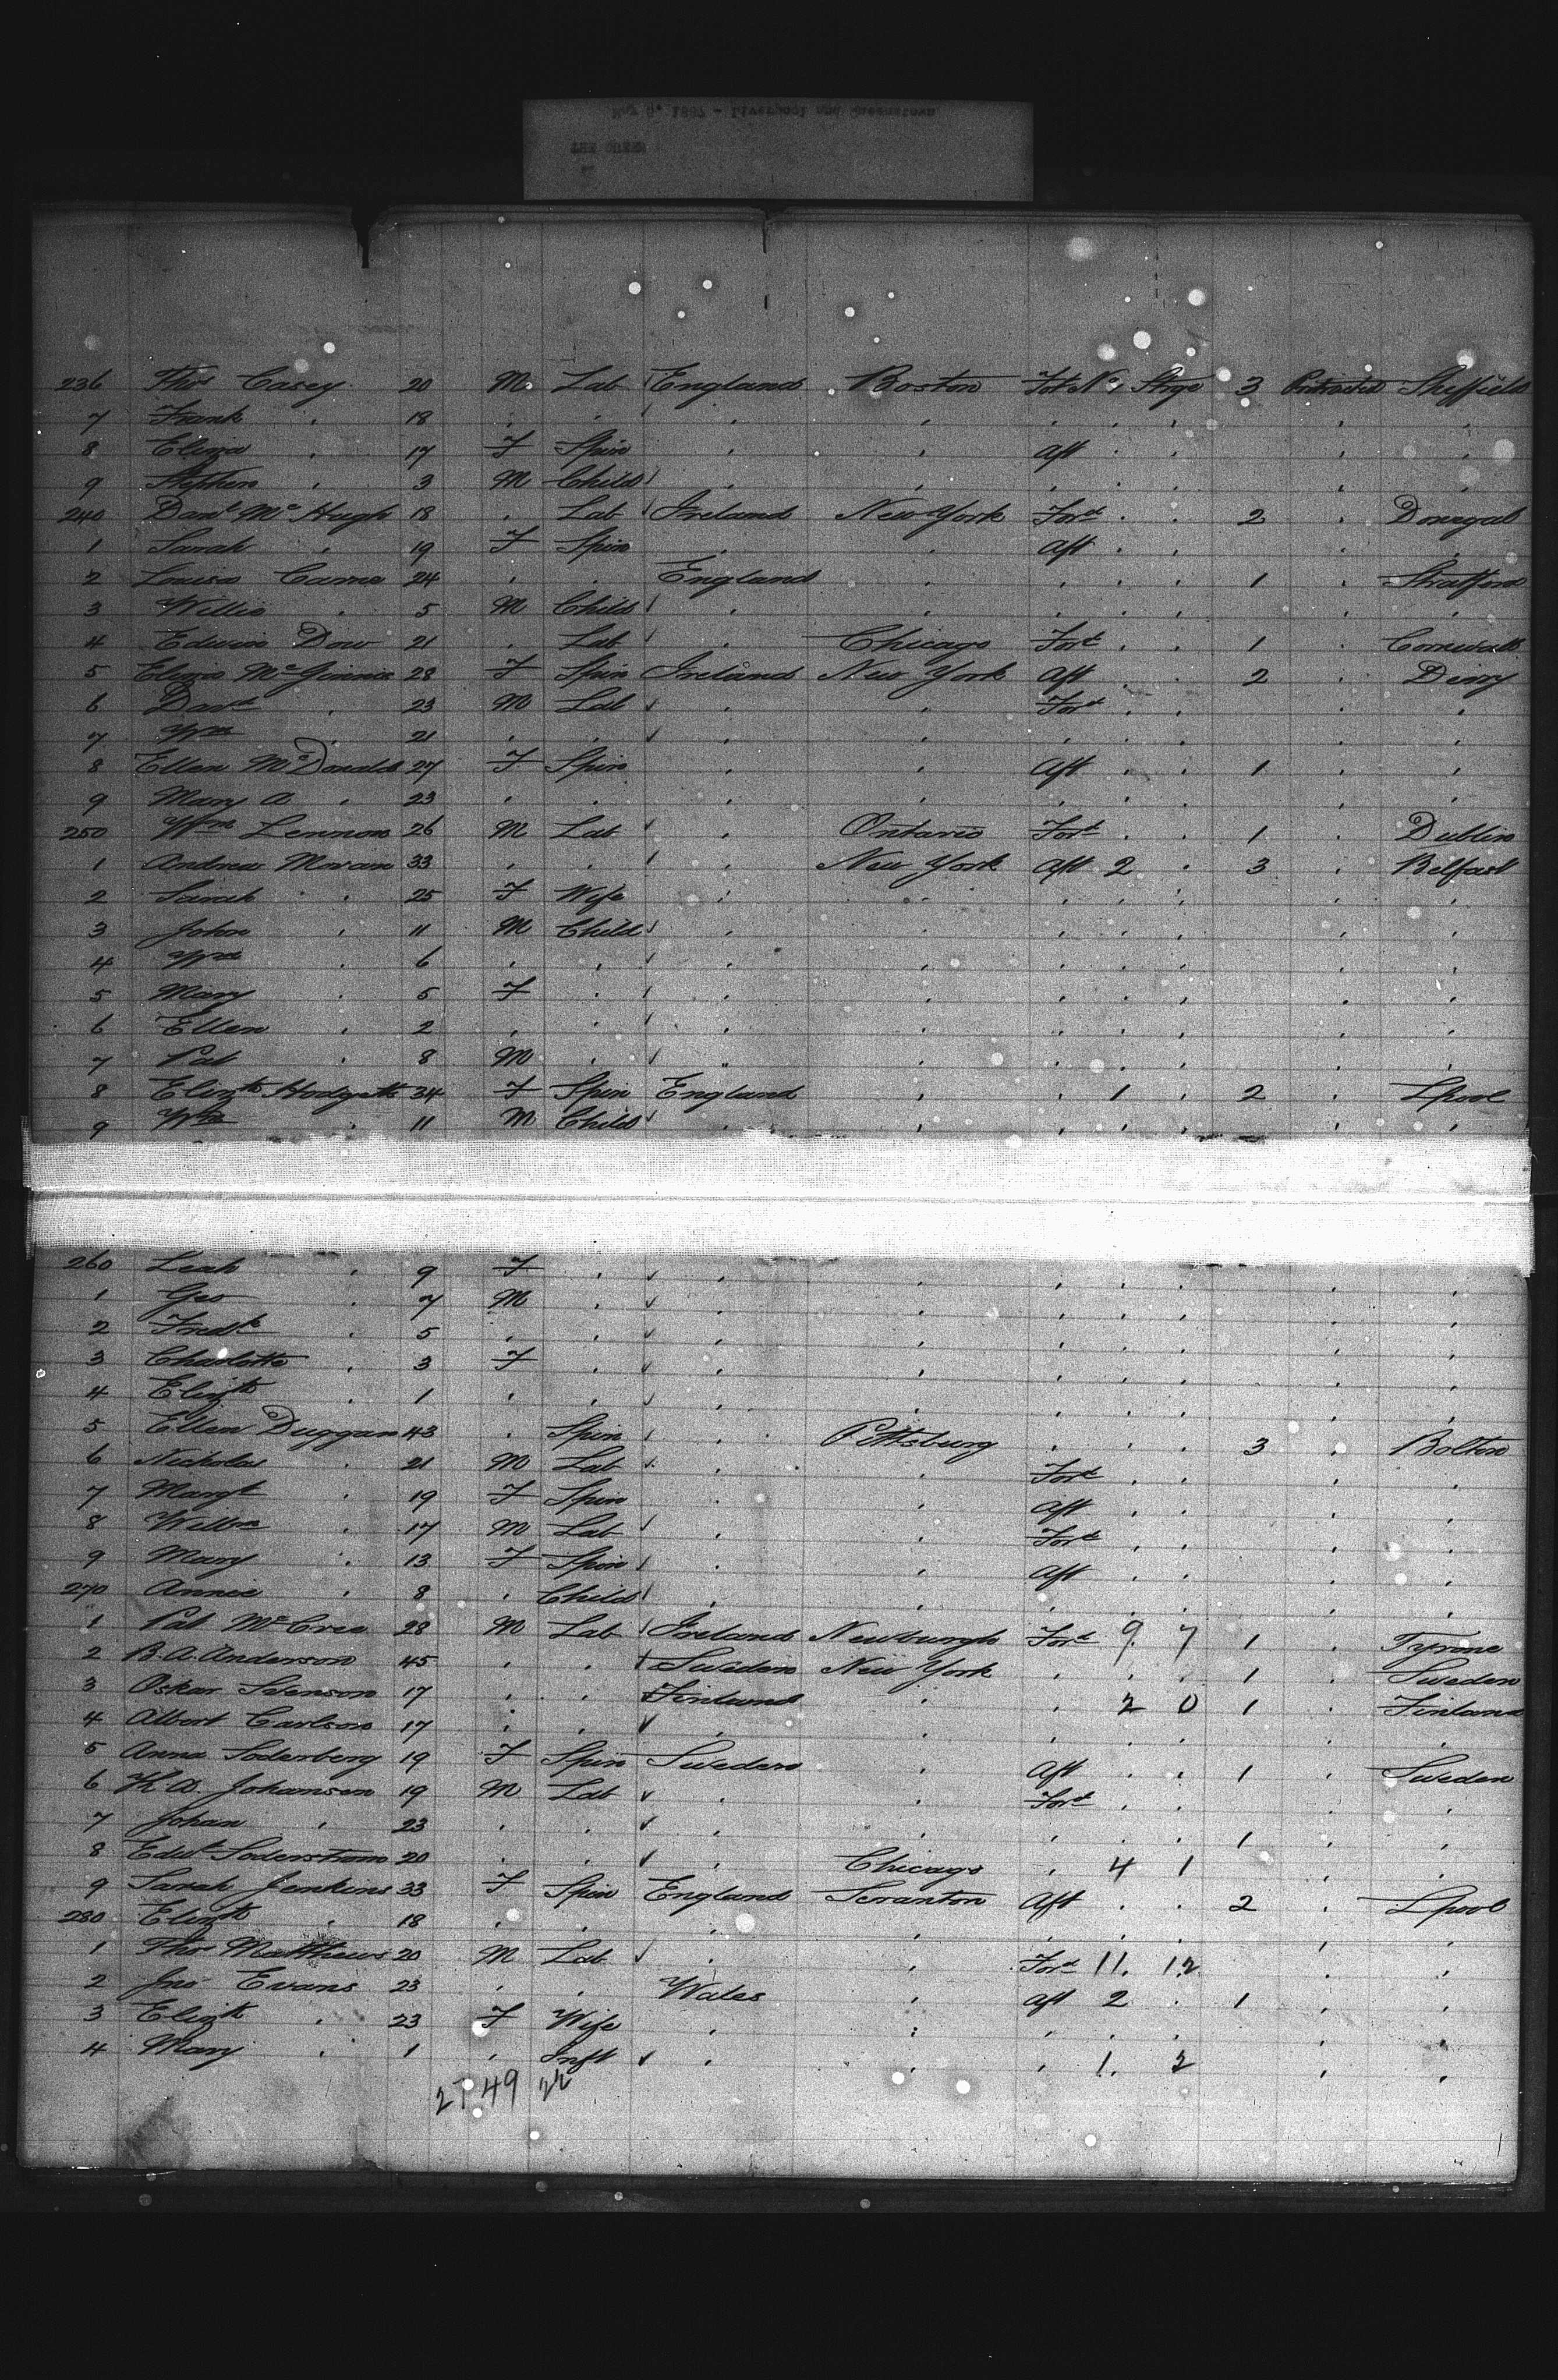 May 9, 1887 - Liverpool and Queenstown
THE QUEEN
236 Thos Casey 20 M Lab England Boston Ford No 1 Strge 3 Protracted Sheffield
7 Frank " 18 " " " " " " " " "
8 Eliza " 17 F Spin " " Aft " " " "
9 Stephen " 3 M Child " " " " " " "
240 Danl McHugh 18 " Lab Ireland New York Ford " " 2 " Donegal
1 Sarah " 19 F Spin " " Aft " " " "
2 Louisa Carne 24 " " England " " " " 1 " Stratford
3 Willie " 5 M Child " " " " " " "
4 Edwin Dow 21 " Lab " Chicago Ford " " 1 " Cornwall
5 Eliza McGinnis 28 F Spin Ireland New York Aft " " 2 " Derry
6 Danl " 23 M Lab " " Ford " " " "
7 Wm " 21 " " " " " " " " "
8 Ellen McDonald 27 F Spin " " Aft " " 1 " "
9 Mary A " 23 " " " " " " " " "
250 Wm Lennon 26 M Lab " Ontario Ford " " 1 " Dublin
1 Andrew Moran 33 " " " New York Aft 2 " 3 " Belfast
2 Sarah " 25 F Wife " " " " " " "
3 John " 11 M Child " " " " " " "
4 Wm " 6 " " " " " " " " "
5 Mary " 5 F " " " " " " " "
6 Ellen " 2 " " " " " " " " "
7 Pat " 8 M " " " " " " " "
8 Elizth Hodgetts 34 F Spin England " " 1 " 2 " Lpool
9 Wm " 11 M Child " " " " " " "
260 Leah " 9 F " " " " " " " "
1 Geo " 7 M " " " " " " " "
2 Fredk " 5 " " " " " " " " "
3 Charlotte " 3 F " " " " " " " "
4 Elizth " 1 " " " " " " " " "
5 Ellen Duggan 43 " Spin " Pittsburg " " " 3 " Bolton
6 Nicholas " 21 M Lab " " Ford " " " "
7 Margt " 19 F Spin " " Aft " " " "
8 Willm " 17 M Lab " " Ford " " " "
9 Mary " 13 F Spin " " Aft " " " "
270 Annie " 8 " Child " " " " " " "
1 Pat McCrea 28 M Lab Ireland Newburgh Ford 9 7 1 " Tyrone
2 B. A. Anderson 45 " " Sweden New York " " " 1 " Sweden
3 Oskar Svenson 17 " " Finland " " 2 0 1 " Finland
4 Albert Carlson 17 " " " " " " " " "
5 Anna Soderberg 19 F Spin Sweden " Aft " " 1 " Sweden
6 K. A. Johanson 19 M Lab " " Ford " " " "
7 Johan " 23 " " " " " " " 1 " "
8 Edwd Soderstrom 20 " " " Chicago " 4 1 " "
9 Sarah Jenkins 33 F Spin England Scranton Aft " " 2 " Lpool
280 Elizth " 18 " " " " " " " " "
1 Thos Matthews 20 M Lab " " Ford 11. 12 " "
2 Jno Evans 23 " " Wales " Aft 2 " 1 " "
3 Elizth " 23 F Wife " " " " " " "
4 Mary " 1 " Inft " " " 1. 2 " "
27 49 22